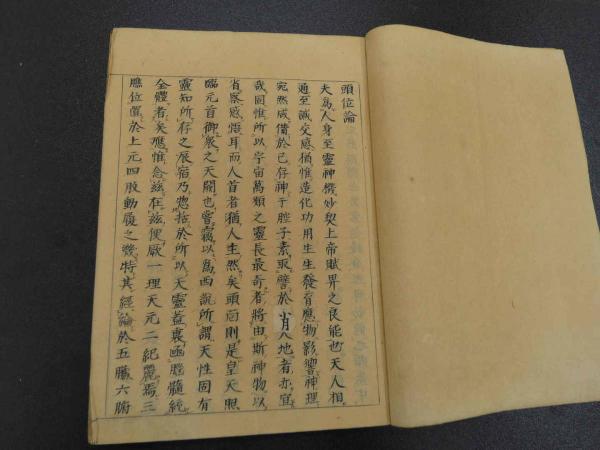 頭位論
夫為人身至靈神機妙契上帝賦畀之良能也天人相
通至誠交感猶惟造化功用生生發育應物影響神理
宛然咸備於已存神于腔子素取譬於小肖人地者亦宜
哉固惟所以宇宙萬類之靈長最奇者將由斯神物以
省察感悟耳而人首者猶人主然矣頭囟則是皇天照
臨元首御蓋之天闕也嘗竊以為西說所謂天性固有
靈知所存之宸宿乃惣括於所以天靈蓋裏函腦髓統
全體者矣應惟念茲在茲便厥一理天元二紀麗焉三
膲位置於上元四股動履之機特其經論於五臟六腑